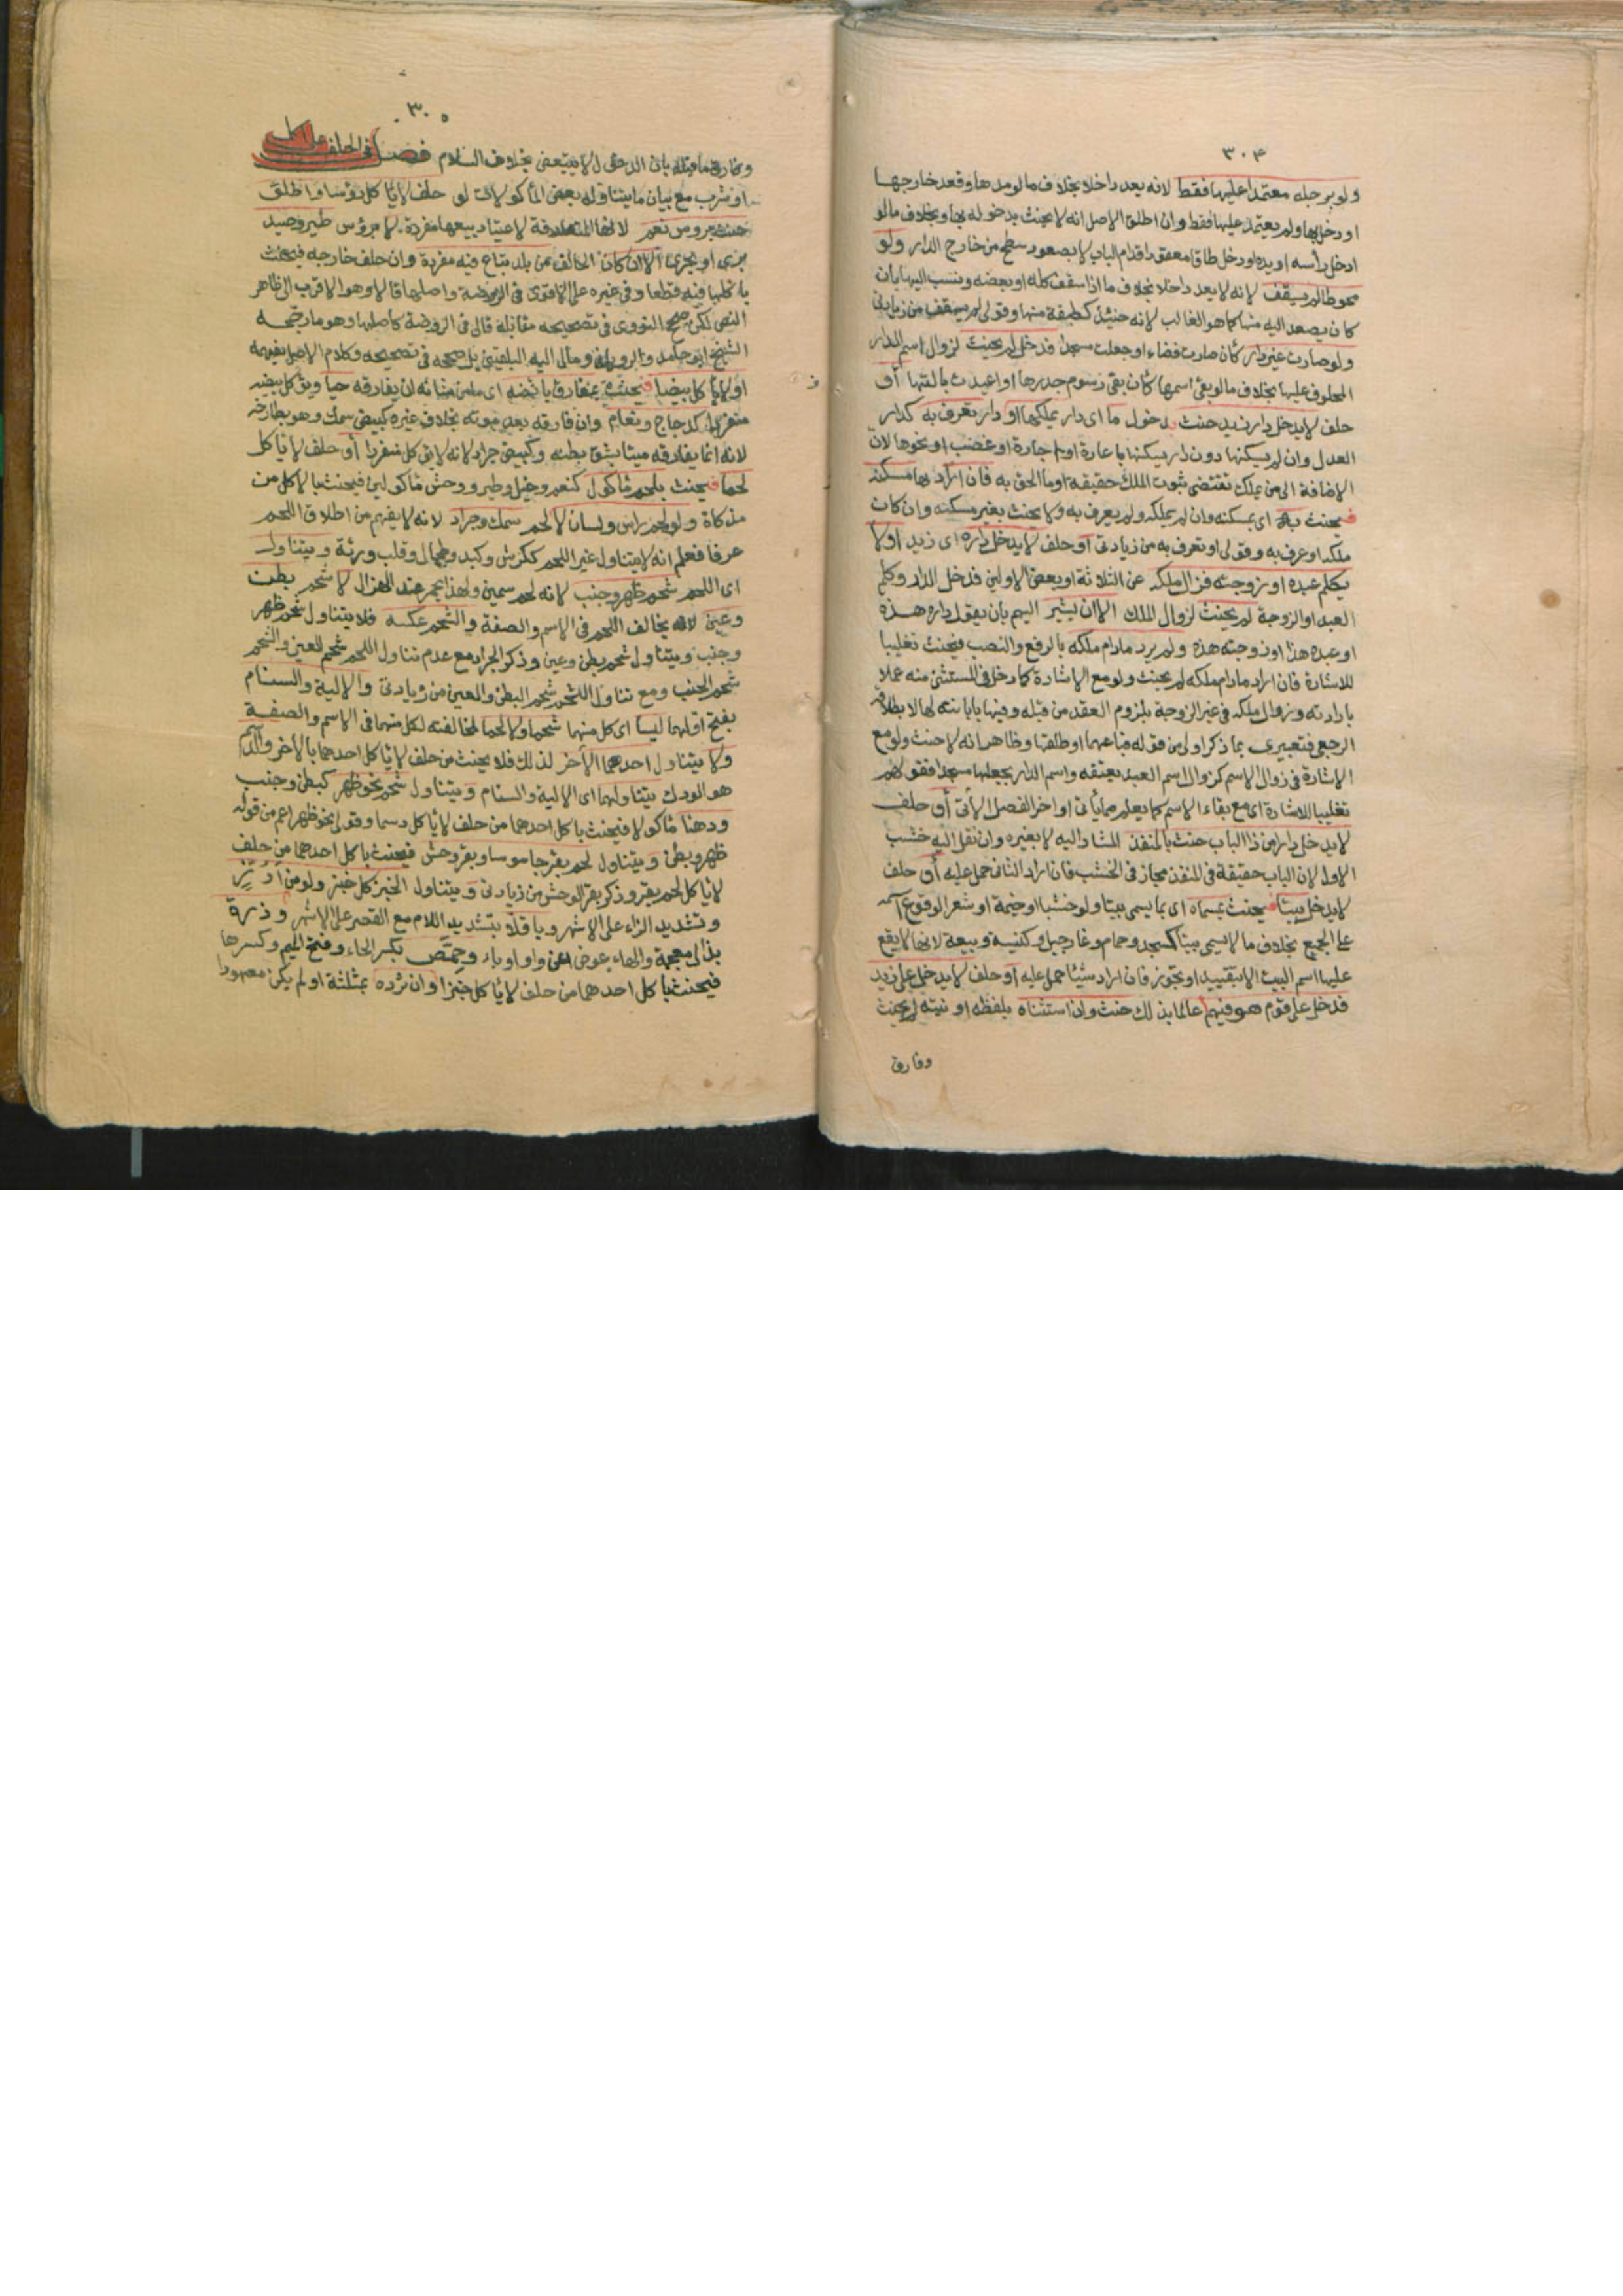 ٣٠٤
ولو برجله معتمدا عليها فقط لانه يعد داخلا بخلاف ما لو مدها وقعد خارجها
او دخل بها ولم يعتمد عليها فقط وان اطلق الاصل انه لا يحنث بدخوله بها وبخلاف ما لو
ادخل راسه او يده او دخل طاقا معقودا قدام الباب لا بصعود سطح من خارج الدار ولو
محوطا لم يسقف لانه لا يعد داخلا بخلاف ما اذا سقف كله او بعضه ونسب اليها بان
كان يصعد اليه منها كما هو الغالب لانه حينئذ كطبقة منها وقولي لم يسقف من زيادتي
ولو صارت غير دار كأن صارت فضاء او جعلت مسجدا فدخل لم يحنث لزوال اسم الدار
المحلوف عليها بخلاف ما لو بقي اسمها كأن بقي رسوم جدرها او اعيدت بالتها أو
حلف لا يدخل دار زيد حنث بدخول ما اي دار يملكها او دار تعرف به كدار
العدل وان لم يسكنها دون دار يسكنها باعارة او اجارة او غصب او نحوها لان
الاضافة الى من يملك تقتضي ثبوت الملك حقيقة او ما الحق به فان اراد بها مسكنه
فيحنث به اي بمسكنه وان لم يملكه ولم يعرف به ولا يحنث بغير مسكنه وان كان
ملكه او عرف به وقولي او تعرف به من زيادتي أو حلف لا يدخل داره اي زيد او لا
يكلم عبده او زوجته فزال ملكه عن الثلاثة او بعض الاولين فدخل الدار وكلم
العبد او الزوجة لم يحنث لزوال الملك الا ان يشير اليهم بان يقول داره هذه
او عبده هذا او زوجته هذه ولم يرد مادام ملكه بالرفع والنصب فيحنث تغليبا
للاشارة فان اراد مادام ملكه لم يحنث ولو مع الاشارة كما دخل في المستثنى منه عملا
بارادته وزوال ملكه في غير الزوجة بلزوم العقد من قبله وفيها بابانته لها لا بطلاقه
الرجعي فتعبيري بما ذكر اولى من قوله فباعهما او طلقها وظاهر انه لا حنث ولو مع
الاشارة في زوال الاسم كزوال اسم العبد بعتقه واسم الدار بجعلها مسجدا فقولهم
تغليبا للاشارة اي مع بقاء الاسم كما يعلم مما يأتي اواخر الفصل الآتي أو حلف
لا يدخل دارا من ذا الباب حنث بالمنفذ المشار اليه لا بغيره وان نقل اليه خشب
الاول لان الباب حقيقة في المنفذ مجاز في الخشب فان اراد الثاني حمل عليه أو حلف
لا يدخل بيتا فيحنث بمسماه اي بما يسمى بيتا ولو خشبا او خيمة او شعرا لوقوع اسمه
على الجميع بخلاف ما لا يسمى بيتا كمسجد وحمام وغار جبل وكنيسة وبيعة لانها لا يقع
عليها اسم البيت الا بتقييد او تجوز فان اراد شيئا حمل عليه أو حلف لا يدخل على زيد
فدخل على قوم هو فيهم عالما بذلك حنث وان استثناه بلفظه او نيته لم يحنث
وفارق
٣٠٥
وفارق ما قبله بان الدخول لا يتبعض بخلاف السلام فصل في الحلف على اكل
او شرب مع بيان ما يتناوله بعض المأكولات لو حلف لا يأكل رؤسا واطلق
حنث برؤس نعم لانها المتعارفة لاعتياد بيعها مفردة لا برؤس طير وصيد
بري او بحري الا ان كان الحالف من بلد تباع فيه مفردة وان حلف خارجه فيحنث
باكلها فيه قطعا وفي غيره على الاقوى في الروضة واصلها قالا وهو الاقرب الى ظاهر
النص لكن صحح النووي في تصحيحه مقابله قال في الروضة كاصلها وهو ما رجحه
الشيخ ابو حامد والروياني ومال اليه البلقيني بل صححه في تصحيحه وكلام الاصل يفهمه
او لا يأكل بيضا فيحنث بمفارق بائضه اي ما من شانه ان يفارقه حيا ويؤكل بيضه
منفردا كدجاج ونعام وان فارقه بعد موته بخلاف غيره كبيض سمك وهو بطارخه
لانه انما يفارقه ميتا بشق بطنه وكبيض جراد لانه لا يؤكل منفردا أو حلف لا يأكل
لحما فيحنث بلحم مأكول كنعم وخيل وطير ووحش مأكولين فيحنث بالاكل من
مذكاة ولو لحم راس ولسان لا لحم سمك وجراد لانه لا يفهم من اطلاق اللحم
عرفا فعلم انه لا يتناول غير اللحم ككرش وكبد وطحال وقلب ورئة ويتناول
اي اللحم شحم ظهر وجنب لانه لحم سمين ولهذا يحمر عند الهزال لا شحم بطن
وعين لانه يخالف اللحم في الاسم والصفة والشحم عكسه فلا يتناول شحم ظهر
وجنب ويتناول شحم بطن وعين وذكر الجراد مع عدم تناول اللحم شحم العين والشحم
شحم الجنب ومع تناول الشحم شحم البطن والعين من زيادتي والالية والسنام
بفتح اولهما ليسا اي كل منهما شحما ولا لحما لمخالفته لكل منهما في الاسم والصفة
ولا يتناول احدهما الآخر لذلك فلا يحنث من حلف لا يأكل احدهما بالآخر والدسم
هو الودك يتناولهما اي الالية والسنام ويتناول شحم نحو ظهر كبطن وجنب
ودهنا مأكولا فيحنث باكل احدهما من حلف لا يأكل دسما وقولي نحو ظهر اعم من قوله
ظهر وبطن ويتناول لحم بقر جاموسا وبقر وحش فيحنث باكل احدهما من حلف
لا يأكل لحم بقر وذكر بقر الوحش من زيادتي ويتناول الخبز كل خبز ولو من ارز
وتشديد الزاء على الاشهر وباقلا بتشديد اللام مع القصر على الاشهر وذرة
بذال معجمة والهاء عوض عن واو او ياء وحمص بكسر الحاء وفتح الميم وكسرها
فيحنث باكل احدهما من حلف لا يأكل خبزا وان ثرده بمثلثة او لم يكن معهودا